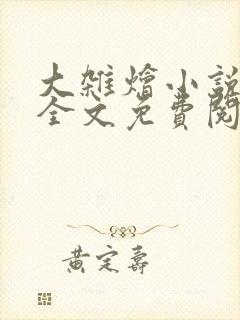 大雑燴小說
全文免費閱
黃定壽